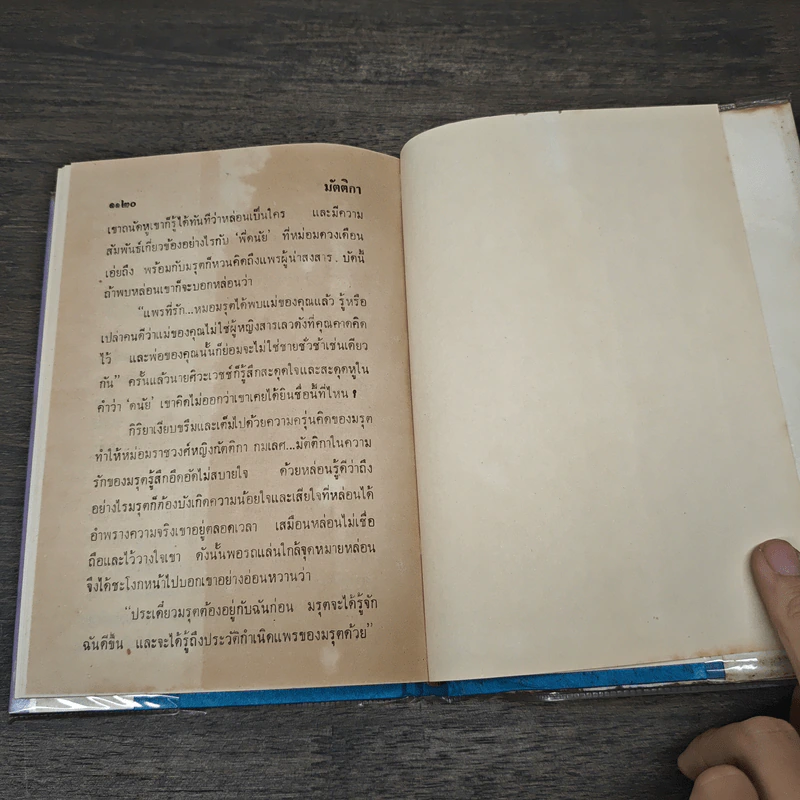 ๑๑๒๐
มัตติกา
เขาถนัดหูเขาก็รู้ได้ทันทีว่าหล่อนเป็นใคร และมีความ
สัมพันธ์เกี่ยวข้องอย่างไรกับ 'พี่ดนัย' ที่หม่อมดวงเดือน
เอ่ยถึง พร้อมกับมรุตก็หวนคิดถึงแพรผู้น่าสงสาร . บัดนี้
ถ้าพบหล่อนเขาก็จะบอกหล่อนว่า
"แพรที่รัก...หมอมรุตได้พบแม่ของคุณแล้ว รู้หรือ
เปล่าคนดีว่าแม่ของคุณไม่ใช่ผู้หญิงสารเลวดังที่คุณคาดคิด
ไว้ และพ่อของคุณนั้นก็ย่อมจะไม่ใช่ชายชั่วช้าเช่นเดียว
กัน" ครั้นแล้วนายศิวะเวชช์ก็รู้สึกสะดุดใจและสะดุดหูใน
คำว่า 'ดนัย' เขาคิดไม่ออกว่าเขาเคยได้ยินชื่อนี้ที่ไหน !
กิริยาเงียบขรึมและเต็มไปด้วยความครุ่นคิดของมรุต
ทำให้หม่อมราชวงศ์หญิงกัตติกา กมเลศ...มัตติกาในความ
รักของมรุตรู้สึกอึดอัดไม่สบายใจ ด้วยหล่อนรู้ดีว่าถึง
อย่างไรมรุตก็ต้องบังเกิดความน้อยใจและเสียใจที่หล่อนได้
อำพรางความจริงเขาอยู่ตลอดเวลา เสมือนหล่อนไม่เชื่อ
ถือและไว้วางใจเขา ดังนั้นพอรถแล่นใกล้จุดหมายหล่อน
จึงได้ชะโงกหน้าไปบอกเขาอย่างอ่อนหวานว่า
"ประเดี๋ยวมรุตต้องอยู่กับฉันก่อน มรุตจะได้รู้จัก
ฉันดีขึ้น และจะได้รู้ถึงประวัติกำเนิดแพรของมรุตด้วย"